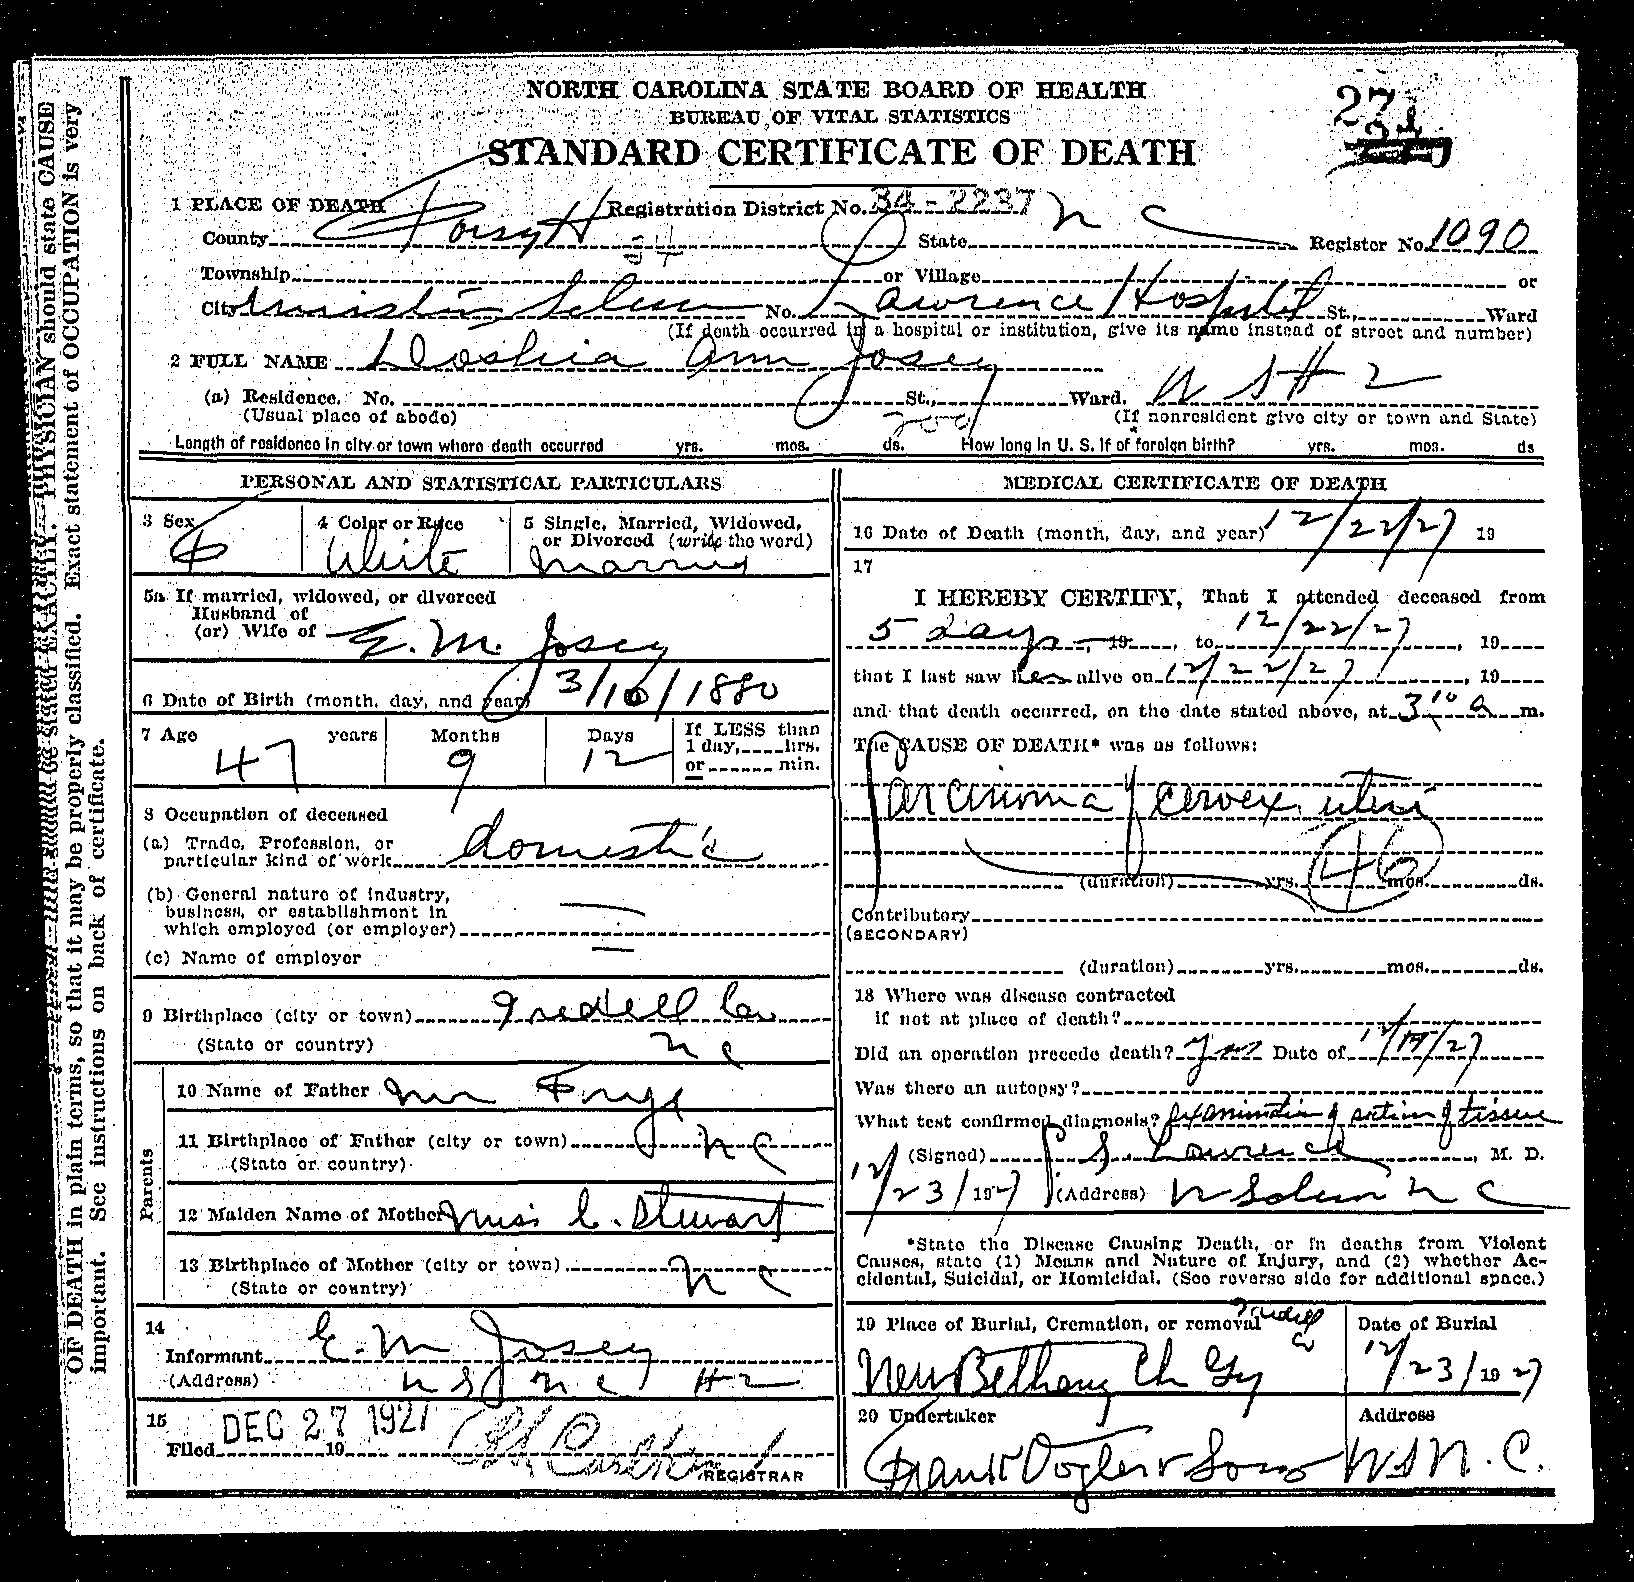 27
NORTH CAROLINA STATE BOARD OF HEALTH
BUREAU OF VITAL STATISTICS
STANDARD CERTIFICATE OF DEATH
1 PLACE OF DEATH Registration District No. 34-2237
County Forsyth 34 State N C Register No. 1090
Township or Village or
City Winston Salem No. Lawrence Hospital St., Ward
(If death occurred in a hospital or institution, give its name instead of street and number)
2 FULL NAME Doshia Ann Josey
(a) Residence. No. St., Ward. W S # 2
(Usual place of abode) (If nonresident give city or town and State)
Length of residence in city or town where death occurred yrs. mos. ds. How long in U. S. if of foreign birth? yrs. mos. ds
PERSONAL AND STATISTICAL PARTICULARS
3 Sex F
4 Color or Race White
5 Single, Married, Widowed,
or Divorced (write the word)
Married
5a If married, widowed, or divorced
Husband of
(or) Wife of E. M. Josey
6 Date of Birth (month, day, and year) 3/10/1880
7 Age 47 years Months 9 Days 12
If LESS than
1 day, hrs.
or min.
8 Occupation of deceased
(a) Trade, Profession, or
particular kind of work domestic
(b) General nature of industry,
business, or establishment in
which employed (or employer)
(c) Name of employer
9 Birthplace (city or town) Iredell Co
(State or country) N C
Parents
10 Name of Father Mr Frye
11 Birthplace of Father (city or town) N C
(State or country)
12 Maiden Name of Mother Miss C. Stewart
13 Birthplace of Mother (city or town) N C
(State or country)
14
Informant E M Josey
(Address) W S N C # 2
15
Filed DEC 27 1927 19
REGISTRAR
MEDICAL CERTIFICATE OF DEATH
16 Date of Death (month, day, and year) 12/22/27 19
17
I HEREBY CERTIFY, That I attended deceased from
5 days, 19, to 12/22/27, 19
that I last saw her alive on 12/22/27, 19
and that death occurred, on the date stated above, at 3 10 a m.
The CAUSE OF DEATH* was as follows:
Carcinoma of cervex uteri
46
(duration) yrs. mos. ds.
Contributory
(SECONDARY)
(duration) yrs. mos. ds.
18 Where was disease contracted
if not at place of death?
Did an operation precede death? Yes Date of 12/17/27
Was there an autopsy?
What test confirmed diagnosis? examination of section of tissue
(Signed) S. Lawrence, M. D.
12/23/1927 (Address) W Salem N C
*State the Disease Causing Death, or in deaths from Violent
Causes, state (1) Means and Nature of Injury, and (2) whether Ac-
cidental, Suicidal, or Homicidal. (See reverse side for additional space.)
19 Place of Burial, Cremation, or removal Iredell Co
New Bethany Ch Gy
Date of Burial
12/23/1927
20 Undertaker
Frank Vogler & Sons
Address
W S N. C.
PHYSICIAN should state CAUSE
OF DEATH in plain terms, so that it may be properly classified. Exact statement of OCCUPATION is very
important. See instructions on back of certificate.